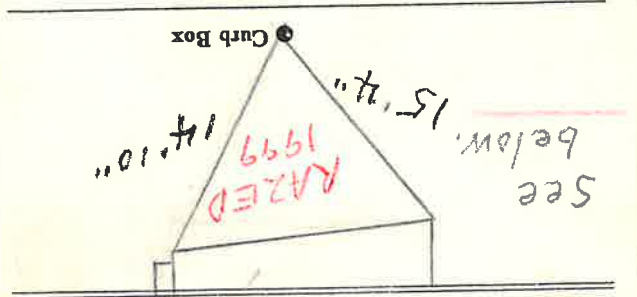 See
below.
RAZED
1999
15' 4"
14' 10"
Curb Box